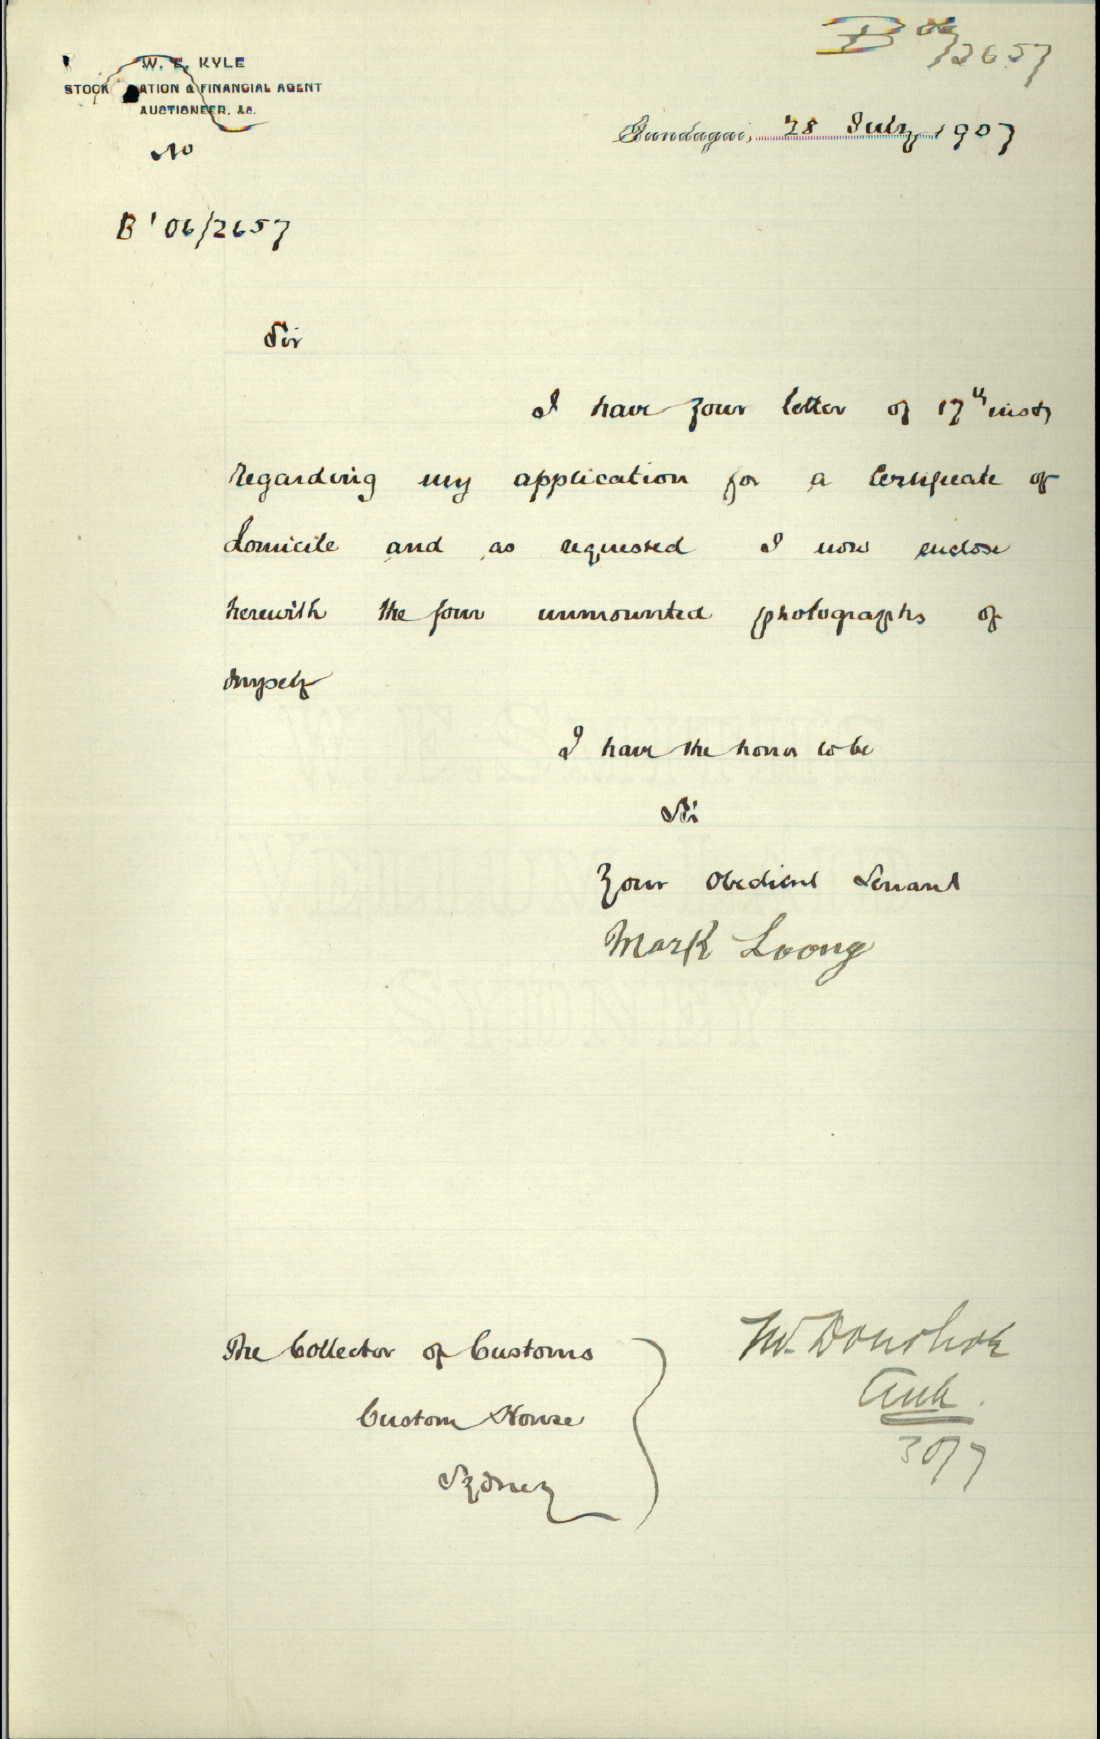 B 06/2657
W. E. KYLE
STOCK ATION & FINANCIAL AGENT
AUCTIONEER, &c.
Gundagai, 28 July 1907
No
B' 06/2657
Sir
I have your letter of 17th inst,
regarding my application for a Certificate of
domicile and as requested I now enclose
herewith the four unmounted photographs of
myself
I have the honor to be
Sir
Your Obedient Servant
Mark Loong
The Collector of Customs
Custom House
Sydney
Mr. Donohoe
30/7
VELLUM LAID
SYDNEY